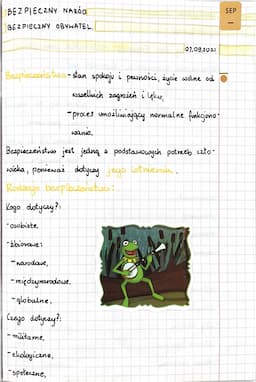 BEZPIECZNY NARÓD
BEZPIECZNY OBYWATEL.
SEP
07.09.2021
Bezpieczeństwo - stan spokoju i pewności, życie wolne od
wszelkich zagrożeń i lęku,
- proces umożliwiający normalne funkcjono-
wanie.
Bezpieczeństwo jest jedną z podstawowych potrzeb czło-
wieka, ponieważ dotyczy jego istnienia.
Rodzaje bezpieczeństwa:
Kogo dotyczy?:
- osobiste,
- zbiorowe:
- narodowe,
- międzynarodowe,
- globalne,
Czego dotyczy?:
- militarne,
- ekologiczne,
- społeczne,